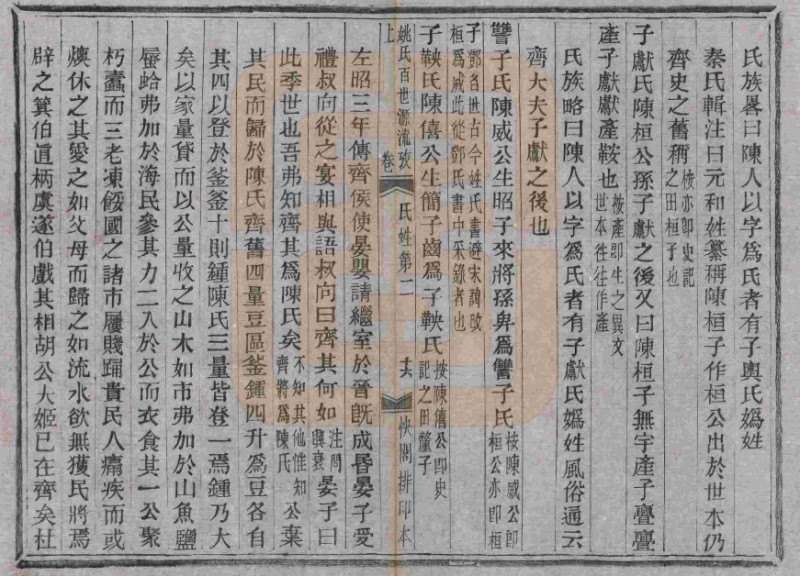 氏族畧曰陳人以字爲氏者有子輿氏嬀姓
秦氏輯注曰元和姓纂稱陳桓子作桓公出於世本仍
齊史之舊稱按亦卽史記之田桓子也
子獻氏陳桓公孫子獻之後又曰陳桓子無宇產子亹亹
產子獻獻產鞍也按產卽生之異文世本往往作產
氏族略曰陳人以字爲氏者有子獻氏嬀姓風俗通云
齊大夫子獻之後也
讐子氏陳威公生昭子來將孫卑爲讐子氏按陳威公卽桓公亦卽桓
子鄧名世古今姓氏書避宋諱改桓爲威此從鄧氏書中采錄者也
子鞅氏陳僖公生簡子齒爲子鞅氏按陳僖公卽史記之田釐子
姚氏百世源流攷 卷上 氏姓第二 十六 快閣排印本
左昭三年傳齊侯使晏嬰請繼室於晉旣成昏晏子受
禮叔向從之宴相與語叔向曰齊其何如注問興衰晏子曰
此季世也吾弗知齊其爲陳氏矣不知其他惟知齊將爲陳氏公棄
其民而歸於陳氏齊舊四量豆區釜鍾四升爲豆各自
其四以登於釜釜十則鍾陳氏三量皆登一焉鍾乃大
矣以家量貸而以公量收之山木如市弗加於山魚鹽
蜃蛤弗加於海民參其力二入於公而衣食其一公聚
朽蠹而三老凍餒國之諸市屨賤踊貴民人痛疾而或
燠休之其愛之如父母而歸之如流水欲無獲民將焉
辟之箕伯直柄虞遂伯戲其相胡公大姬已在齊矣杜